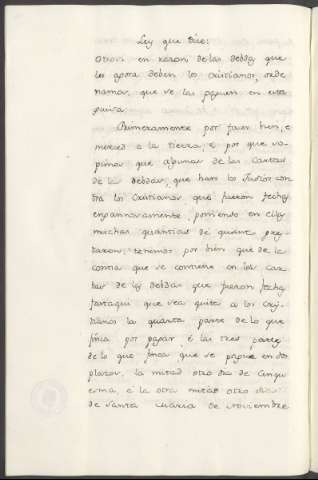 Ley que dice:
Otrosi en razon de las debdas que
les agora deben los cristianos, orde
namos, que se les paguen en esta
guisa.
Primeramente por facer bien, e
merced a la tierra, e por que sa-
pimos que algunas de las cartas
de las debdas, que han los Judios con
tra los Cristianos que fueron fechas
engannosamente, poniendo en ellas
muchas quantias de quanto pres-
taron; tenemos por bien que de la
contia que se contiene en las car
tas de las debdas que fueron fechas
fastaqui que sea quita a los Cris-
tianos la quarta parte de lo que
finca por pagar, e las tres partes
de lo que finca que se pague en dos
plazos, la mitad otro dia de Cinqu
esma, e la otra mitad otro dia
de Santa Maria de Noviembre